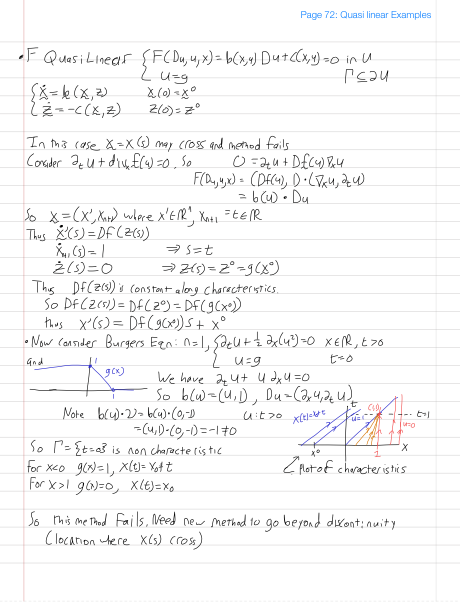 Page 72: Quasi linear Examples
• F Quasi Linear { F(Du,u,x) = b(x,y) Du + c(x,y) = 0 in U
u = g Γ ⊆ ∂U
{ ẋ = b(x,z) x(0) = x⁰
ż = -c(x,z) z(0) = z⁰
In this case x = x(s) may cross and method fails
Consider ∂ₜu + divₓ f(u) = 0, So 0 = ∂ₜu + Df(u)·∇ₓu
F(Du,u,x) = (Df(u), 1)·(∇ₓu, ∂ₜu)
= b(u)·Du
So x = (x', xₙ₊₁) where x' ∈ ℝⁿ, xₙ₊₁ = t ∈ ℝ
Thus ẋ'(s) = Df(z(s))
ẋₙ₊₁(s) = 1 ⇒ s = t
ż(s) = 0 ⇒ z(s) = z⁰ = g(x⁰)
Thus Df(z(s)) is constant along characteristics.
So Df(z(s)) = Df(z⁰) = Df(g(x⁰))
thus x'(s) = Df(g(x⁰))s + x⁰
• Now consider Burgers Eqn: n=1, { ∂ₜu + ½ ∂ₓ(u²) = 0 x∈ℝ, t>0
u = g t=0
and
1 g(x)
1
We have ∂ₜu + u ∂ₓu = 0
So b(u) = (u,1), Du = (∂ₓu, ∂ₜu)
Note b(u)·ν = b(u)·(0,-1) U: t>0
= (u,1)·(0,-1) = -1 ≠ 0
t
t=1
u=0
x⁰ 1 x
So Γ = {t=0} is non characteristic
For x<0 g(x)=1, x(t)=x₀+t
For x>1 g(x)=0, x(t)=x₀
Plot of characteristics
So this method Fails, Need new method to go beyond discontinuity
(location where x(s) cross)